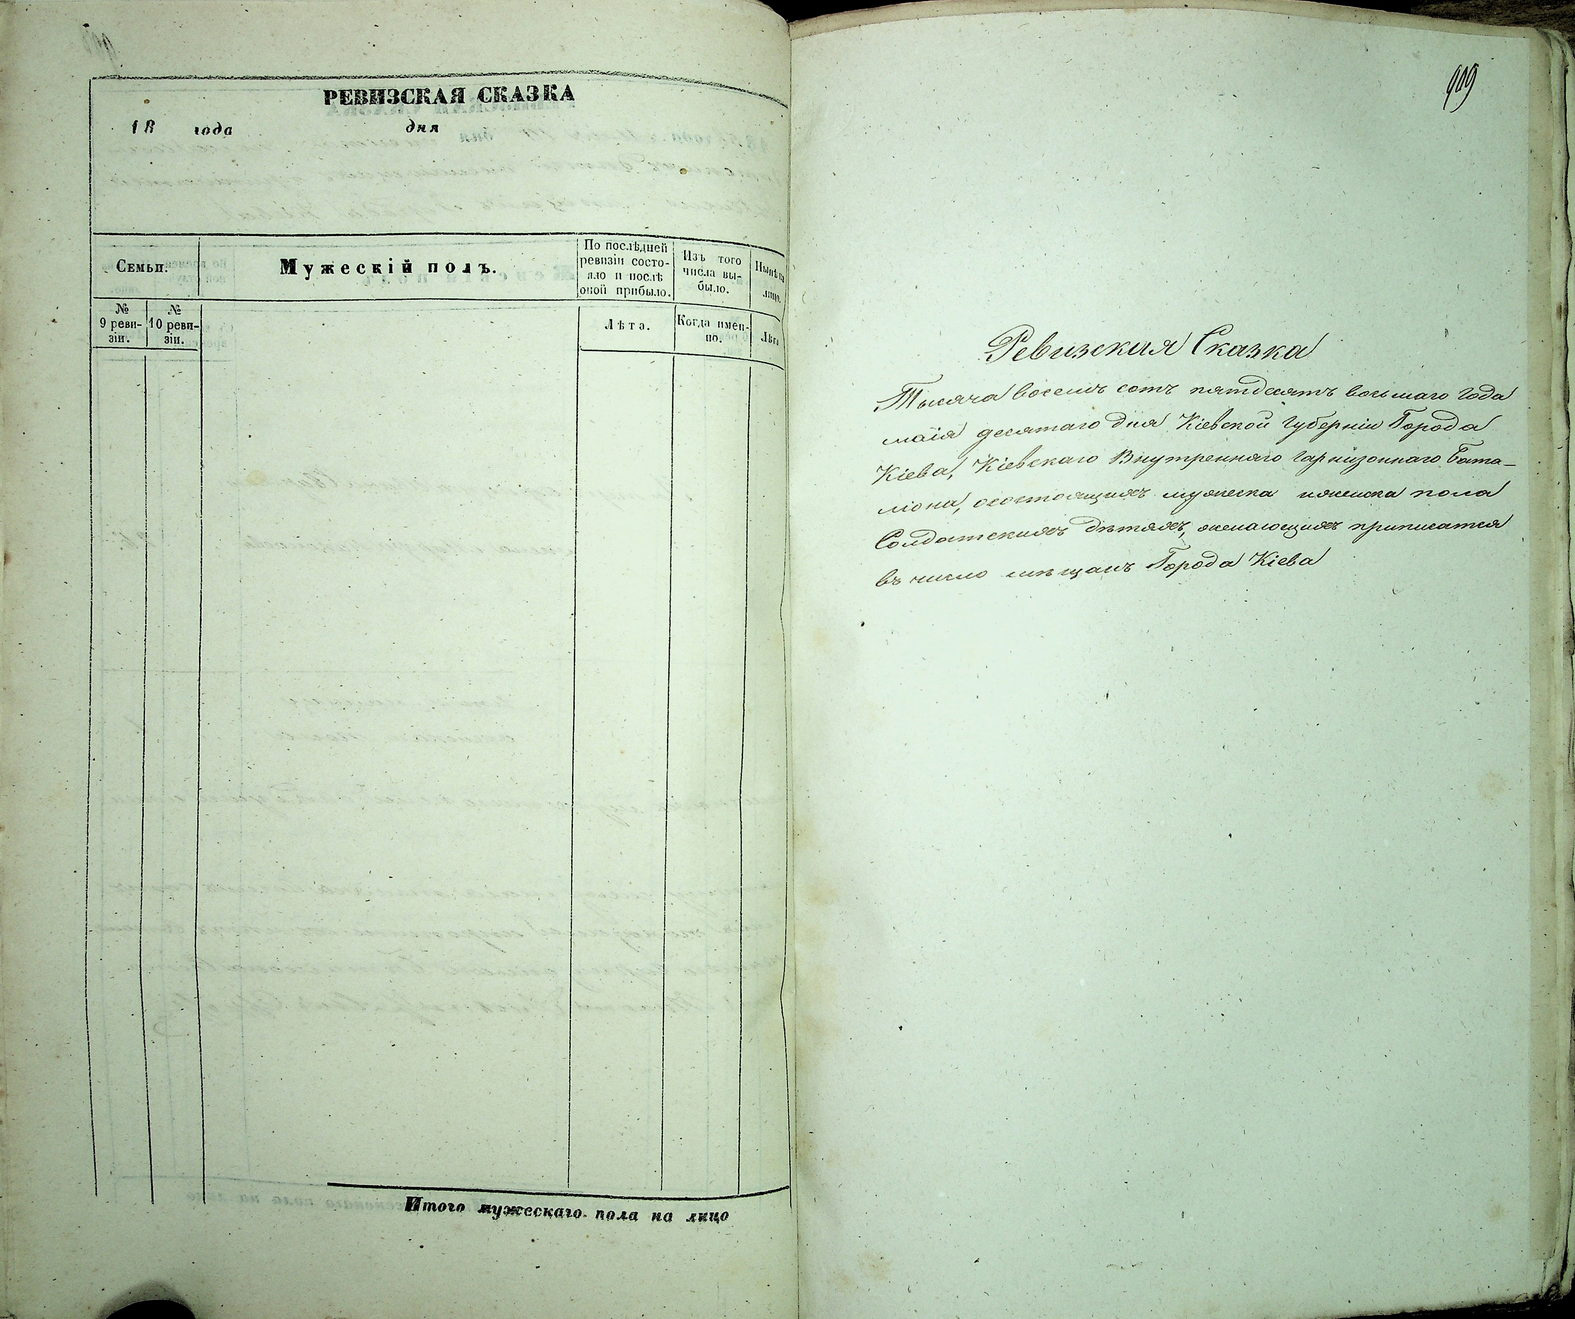 РЕВИЗСКАЯ СКАЗКА
18 года дня
Семьи.
Мужескій полъ.
По послѣдней
ревизіи состо-
яло и послѣ
оной прибыло.
Изъ того
числа вы-
было.
Нынѣ на
лицо.
№
9 реви-
зіи.
№
10 реви-
зіи.
Лѣта.
Когда имен-
но.
Лѣта
Итого мужескаго пола на лицо
909
Ревизская Сказка
Тысяча восемь сотъ пятдесятъ восьмаго года
маія десятаго дня Кіевской Губерніи Города
Кіева, Кіевскаго Внутренняго гарнизоннаго Бата-
ліона, осостоящихъ мужеска и женска пола
Солдатскихъ дѣтяхъ, желающихъ приписатся
въ число мѣщанъ Города Кіева